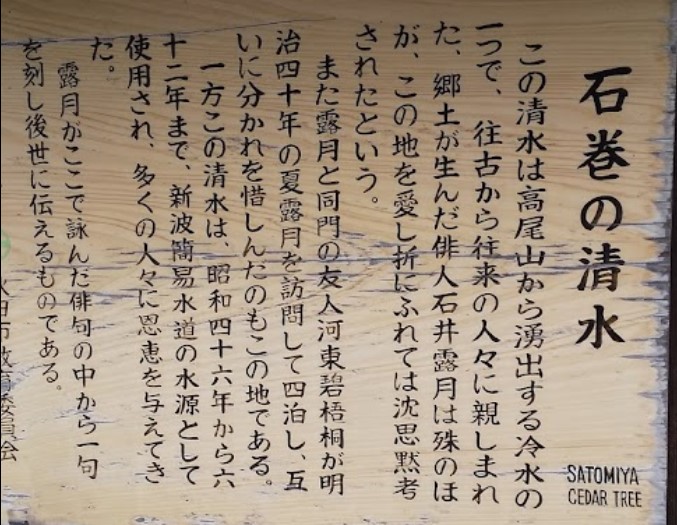 石巻の清水
この清水は高尾山から湧出する冷水の
一つで、往古から往来の人々に親しまれ
た、郷土が生んだ俳人石井露月は殊のほ
が、この地を愛し折にふれては沈思黙考
されたという。
また露月と同門の友人河東碧梧桐が明
治四十年の夏露月を訪問して四泊し、互
いに分かれを惜しんだのもこの地である。
一方この清水は、昭和四十六年から六
十二年まで、新波簡易水道の水源として
使用され、多くの人々に恩恵を与えてき
た。
露月がここで詠んだ俳句の中から一句
を刻し後世に伝えるものである。
田市教育委員会
SATOMIYA
CEDAR TREE